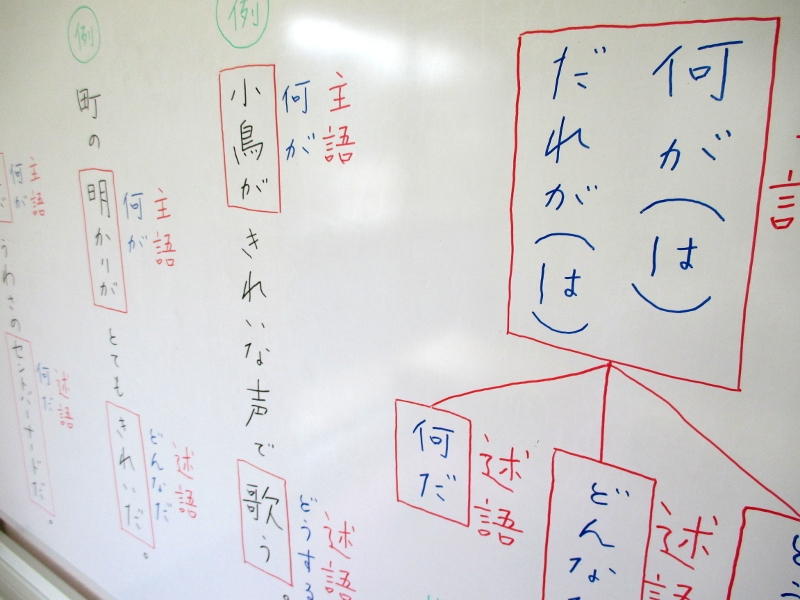 何が(は)
だれが(は)
何だ
述語
どんな
述語
例
主語
何が
小鳥がきれいな声で歌う。
述語
どうする
例
主語
何が
町の明かりがとてもきれいだ。
述語
どんなだ
主語
何が
うわさのセントバーナードだ。
述語
何だ